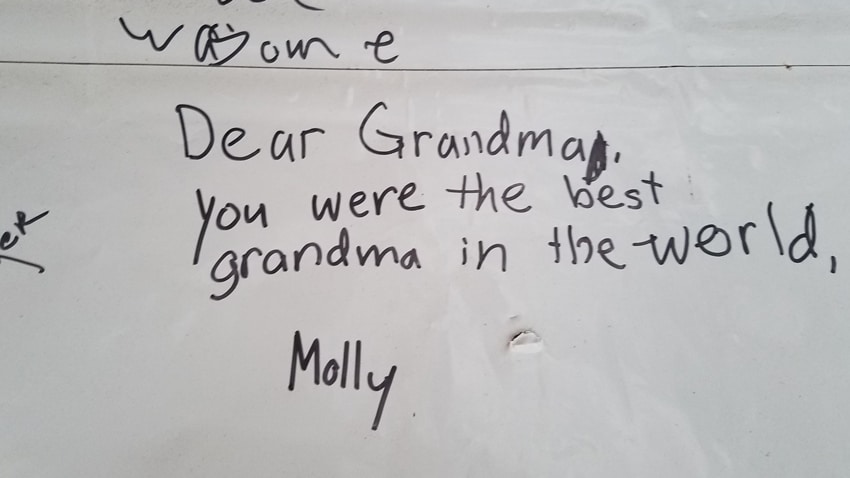 wasome
Dear Grandma,
you were the best
grandma in the world,
Molly